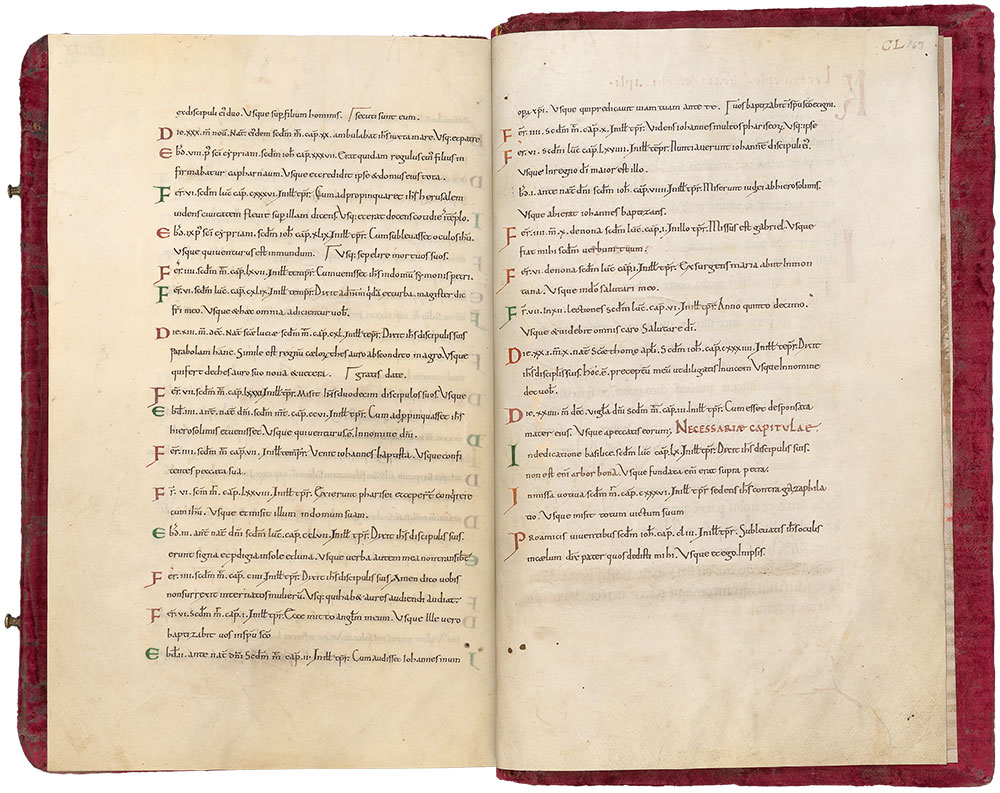 et discipuli ei' duo. Usq̄ue sup̄ filium hominis. Γsecuti sunt eum.
Die .xxx. m̄. nou̅. Nat̄. eiusdem secd̄m m̄. cap̄. xx. ambulab̄at ih̄s iuxta mare. Usq; et patre
Ebd̄o .viii. p̄ sc̄i cyp̄riani. secd̄m ioh̄. cap̄. xxxvii. Erat quidam regulus cui' filius in
firmabatur capharnaum. Usque et credidit ipse & domus eius tota.
Fer̄. vi. secd̄m luc̄. cap̄. cxxxvi. In ill̄ tp̄r. Cum adpropinquaret ih̄s hierusalem
uidens ciuitatem fleuit sup̄ illam dicens. Usq; et erat docens cotidie ī teplo.
Ebd̄o .ix. p̄ sc̄i cyp̄riani. secd̄m ioh̄. cap̄. xlix. In ill̄ tp̄r. Cum subleuasset oculos ih̄s
Usque qui uenturus est in mundum. Γ Usq; sepelire mortuos suos.
Fer̄. iiii. secd̄m m̄. cap̄. lxvii. In ill̄ temp̄r. Cum uenisset ih̄s in domum symonis petri.
Fer̄. vi. secd̄m luc̄. cap̄. cxlix. In ill̄ temp̄r. Dixit ad ih̄m quidā et turba. magister dic
fr̄i meo. Usque & haec omnia adicientur uob̄.
Die .xiii. m̄. dec̄. Nat̄. scae luciae secd̄m m̄. cap̄. cxl. In ill̄ tep̄r. Dixit ih̄s discipulis suis
parabolam hanc. Simile est regnū caelor; thesauro abscondito in agro. Usque
qui fert de thesauro suo noua & uetera. Γ gratis date.
Fer̄. vii. secd̄m m̄. cap̄. lxxxi. In ill̄ tp̄r. Misit ih̄s duodecim discipulos suos. Usque
Ebd̄. iiii. ant̄e. nat̄. dn̄i. secd̄m m̄t. cap̄. ccvi. In ill̄ tp̄r. Cum adp̄pinquasset ih̄s
hierosolimis et uenisset. Usque qui uenturus ē. In nomine dn̄i.
Fer̄. iiii. secd̄m m̄. cap̄. vii. In ill̄ temp̄r. Venit iohannes baptista. Usque confi
tentes peccata sua.
Fer̄. vi. secd̄m m̄. cap̄. lxxviii. In ill̄ tp̄r. Exierunt pharisei et ceper̄t conq̄rere
cum ih̄u. Usque et misit illum in domum suam.
Ebd̄o. iii. ant̄e. nat̄. dn̄i secd̄m luc̄. cap̄. cclvii. In ill̄ tp̄r. Dixit ih̄s discipulis suis.
erunt signa et p̄digia in sole et luna. Usque uerba autem mea non transib̄t
Fer̄. iiii. secd̄m m̄. cap̄. ciiii. In ill̄ tp̄r. Dixit ih̄s discipulis suis Amen dico uobis
non surrexit inter natos mulierū. Usq; qui hab& aures audiendi audiat.
Fer̄. vi. secd̄m m̄. cap̄. i. In ill̄ tp̄r. Ecce mitto angl̄m meum. Usque Ille uero
baptizabit uos in sp̄u sc̄o
Ebd̄. ii. ante nat̄ dn̄i. Secd̄m m̄. cap̄. ii. In ill̄ tp̄r. Cum audisset iohannes in uin
CL
opa xp̄i. Usque qui preparauit uiam tuam ante te. Γuos baptizab̄it in sp̄u sc̄o et igni.
Fer̄. iiii. secd̄m m̄. cap̄. x. In ill̄ tp̄r. Videns iohannes multos phariseor; Usq; ipse
Fer̄. vi. secd̄m luc̄. cap̄. lxviiii. In ill̄ tēp̄r. Nuntiauerunt iohannē discipuli ei'.
Usque In regno dī maior est illo.
Ebd̄o. i. ante nat̄ dn̄i secd̄m ioh̄. cap̄. viiii. In ill̄ tp̄r. Miserunt iudei ab hierosolimis.
Usque ubi erat iohannes baptizans.
Fer̄. iiii. m̄. x. de nona secd̄m luc̄. cap̄. i. In illo tp̄r. Missus est gabriel. Usque
fiat mihi secd̄m uerbum tuum.
Fer̄. vi. de nona secd̄m luc̄. cap̄. i. In ill̄ tēp̄r. Exsurgens maria abiit In mon
tana. Usque in dō salutari meo.
Fer̄. vii. In xii. lectiones secd̄m luc̄. cap̄. vi. In ill̄ tp̄r. Anno quinto decimo.
Usque & uidebit omnis caro Salutare dī.
Die .xxi. m̄. x. nat̄ Scī thome apl̄i. Secd̄m ioh̄. cap̄. cxxxiiii. In ill̄ tp̄r. Dixit
ih̄s disciplis suis. Hoc ē. preceptū meū ut diligatis Inuicem Usque In nomine
det uob̄.
Die .xxiii. m̄. dec̄. Vigl̄a dn̄i secd̄m m̄. cap̄. iii. In ill̄ tp̄r. Cum esset desponsata
mater eius. Usque a peccatis eorum; NECESSARIÆ CAPITULAE
In dedicatione basilice. secd̄m luc̄. cap̄. lx. In ill̄ tp̄r. Dixit ih̄s discipulis suis.
non est enī arbor bona. Usque fundata enī erat supra petrā.
In missa uotiua secd̄m m̄. cap̄. cxxxvi. In ill̄ tp̄r sedens ih̄s contra gazaphila
tio. Usque misit totum uictum suum
Pro amicis uiuentibus secd̄m ioh̄. cap̄. cliii. In ill̄ tp̄r. Subleuatis ih̄s oculis
in caelum dix̄ pater quos dedisti mihi. Usque et ego In ipsis.